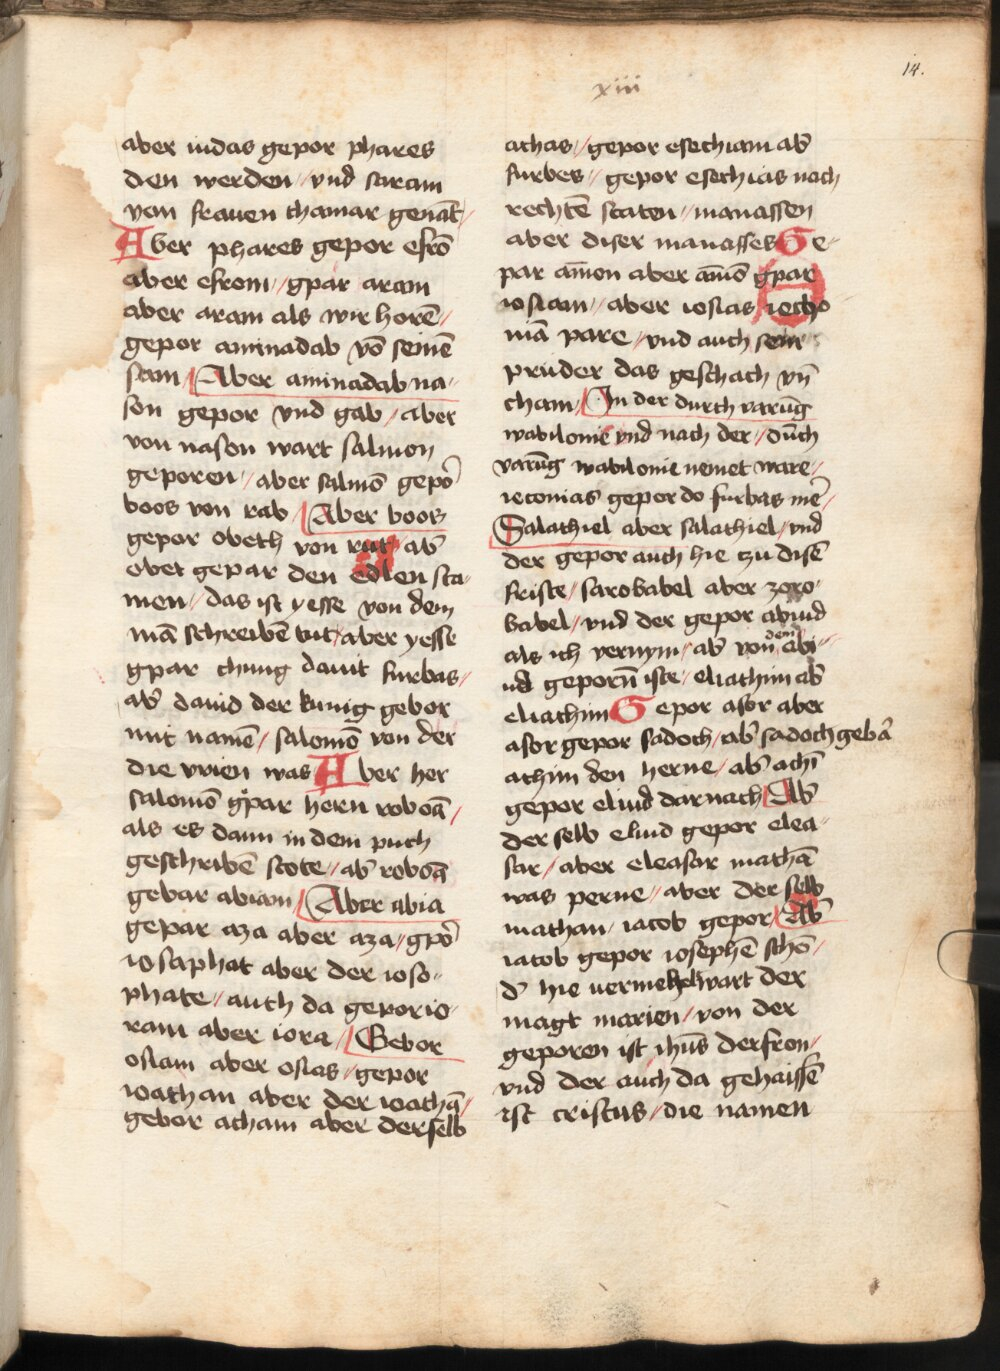 14.
xiii
aber iudas gepor phares
den werden // vnd saram
von frauen thamar genāt /
Aber phares gepor efrō
aber efrom // gpar aram
aber aram als wir horē //
gepor aminadab vō seinē
stam / Aber aminadab na-
son gepor vnd gab / aber
von nason wart salmon
geporen // aber salmō gepor̄
boos von rab / Aber boos
gepor obeth von rut ab̄
obet gepar den edlen sta-
men // das ist yesse von dem
mā schreibē tut / aber yesse
gpar chung dauit furbas //
ab̄ dauid der kunig gebor
mit namē / salomō von der
die vrien was Aber her
salomō gpar hern roboā /
als es dann in dem puch
geschribē stote // ab̄ roboā
gebar abiam / Aber abia
gepar aza aber aza // gpor̄
iosaphat aber der ioso-
phate / auch da gepor io-
ram aber iora / Gebor
osiam aber osias // gepor
ioathan aber der ioathā //
gebor acham aber derselb
athas // gepor esechiam ab̄
furbes // gepor esechias noch
rechtē staten // manassen
aber diser manasses Ge-
par amōn aber amōs gpar
iosiam // aber iosias iecho-
niā pare / vnd auch sein
prüder das geschach vn̄
cham / In der durch varūg
wabilonie vnd nach der / durch
varūg wabilonie nemet ware //
ieconias gepor do furbas mer̄ /
Salathiel aber salathiel / vnd
der gepor auch hie tzu disē
friste / sarobabel aber zoro-
babel / vnd der gepor abiud
als ich vernym / ab̄ von dem abi-
ud geporn̄ iste / eliathim ab̄
eliathim Gepor asor aber
asor gepor sadoch / ab̄ sadoch gebā
athim den herne / ab̄ achī
gepor eliud darnach Ab̄
der selb eliud gepor elea-
sar / aber eleasar mathā
was perne // aber der selb
mathan / iacob gepor / Ab̄
iacob gepor iosephē schō /
d' hie vermehelt wart der
magt marien / von der
geporen ist ihūs der fron /
vnd der auch da gehaissē
ist cristus / die namen